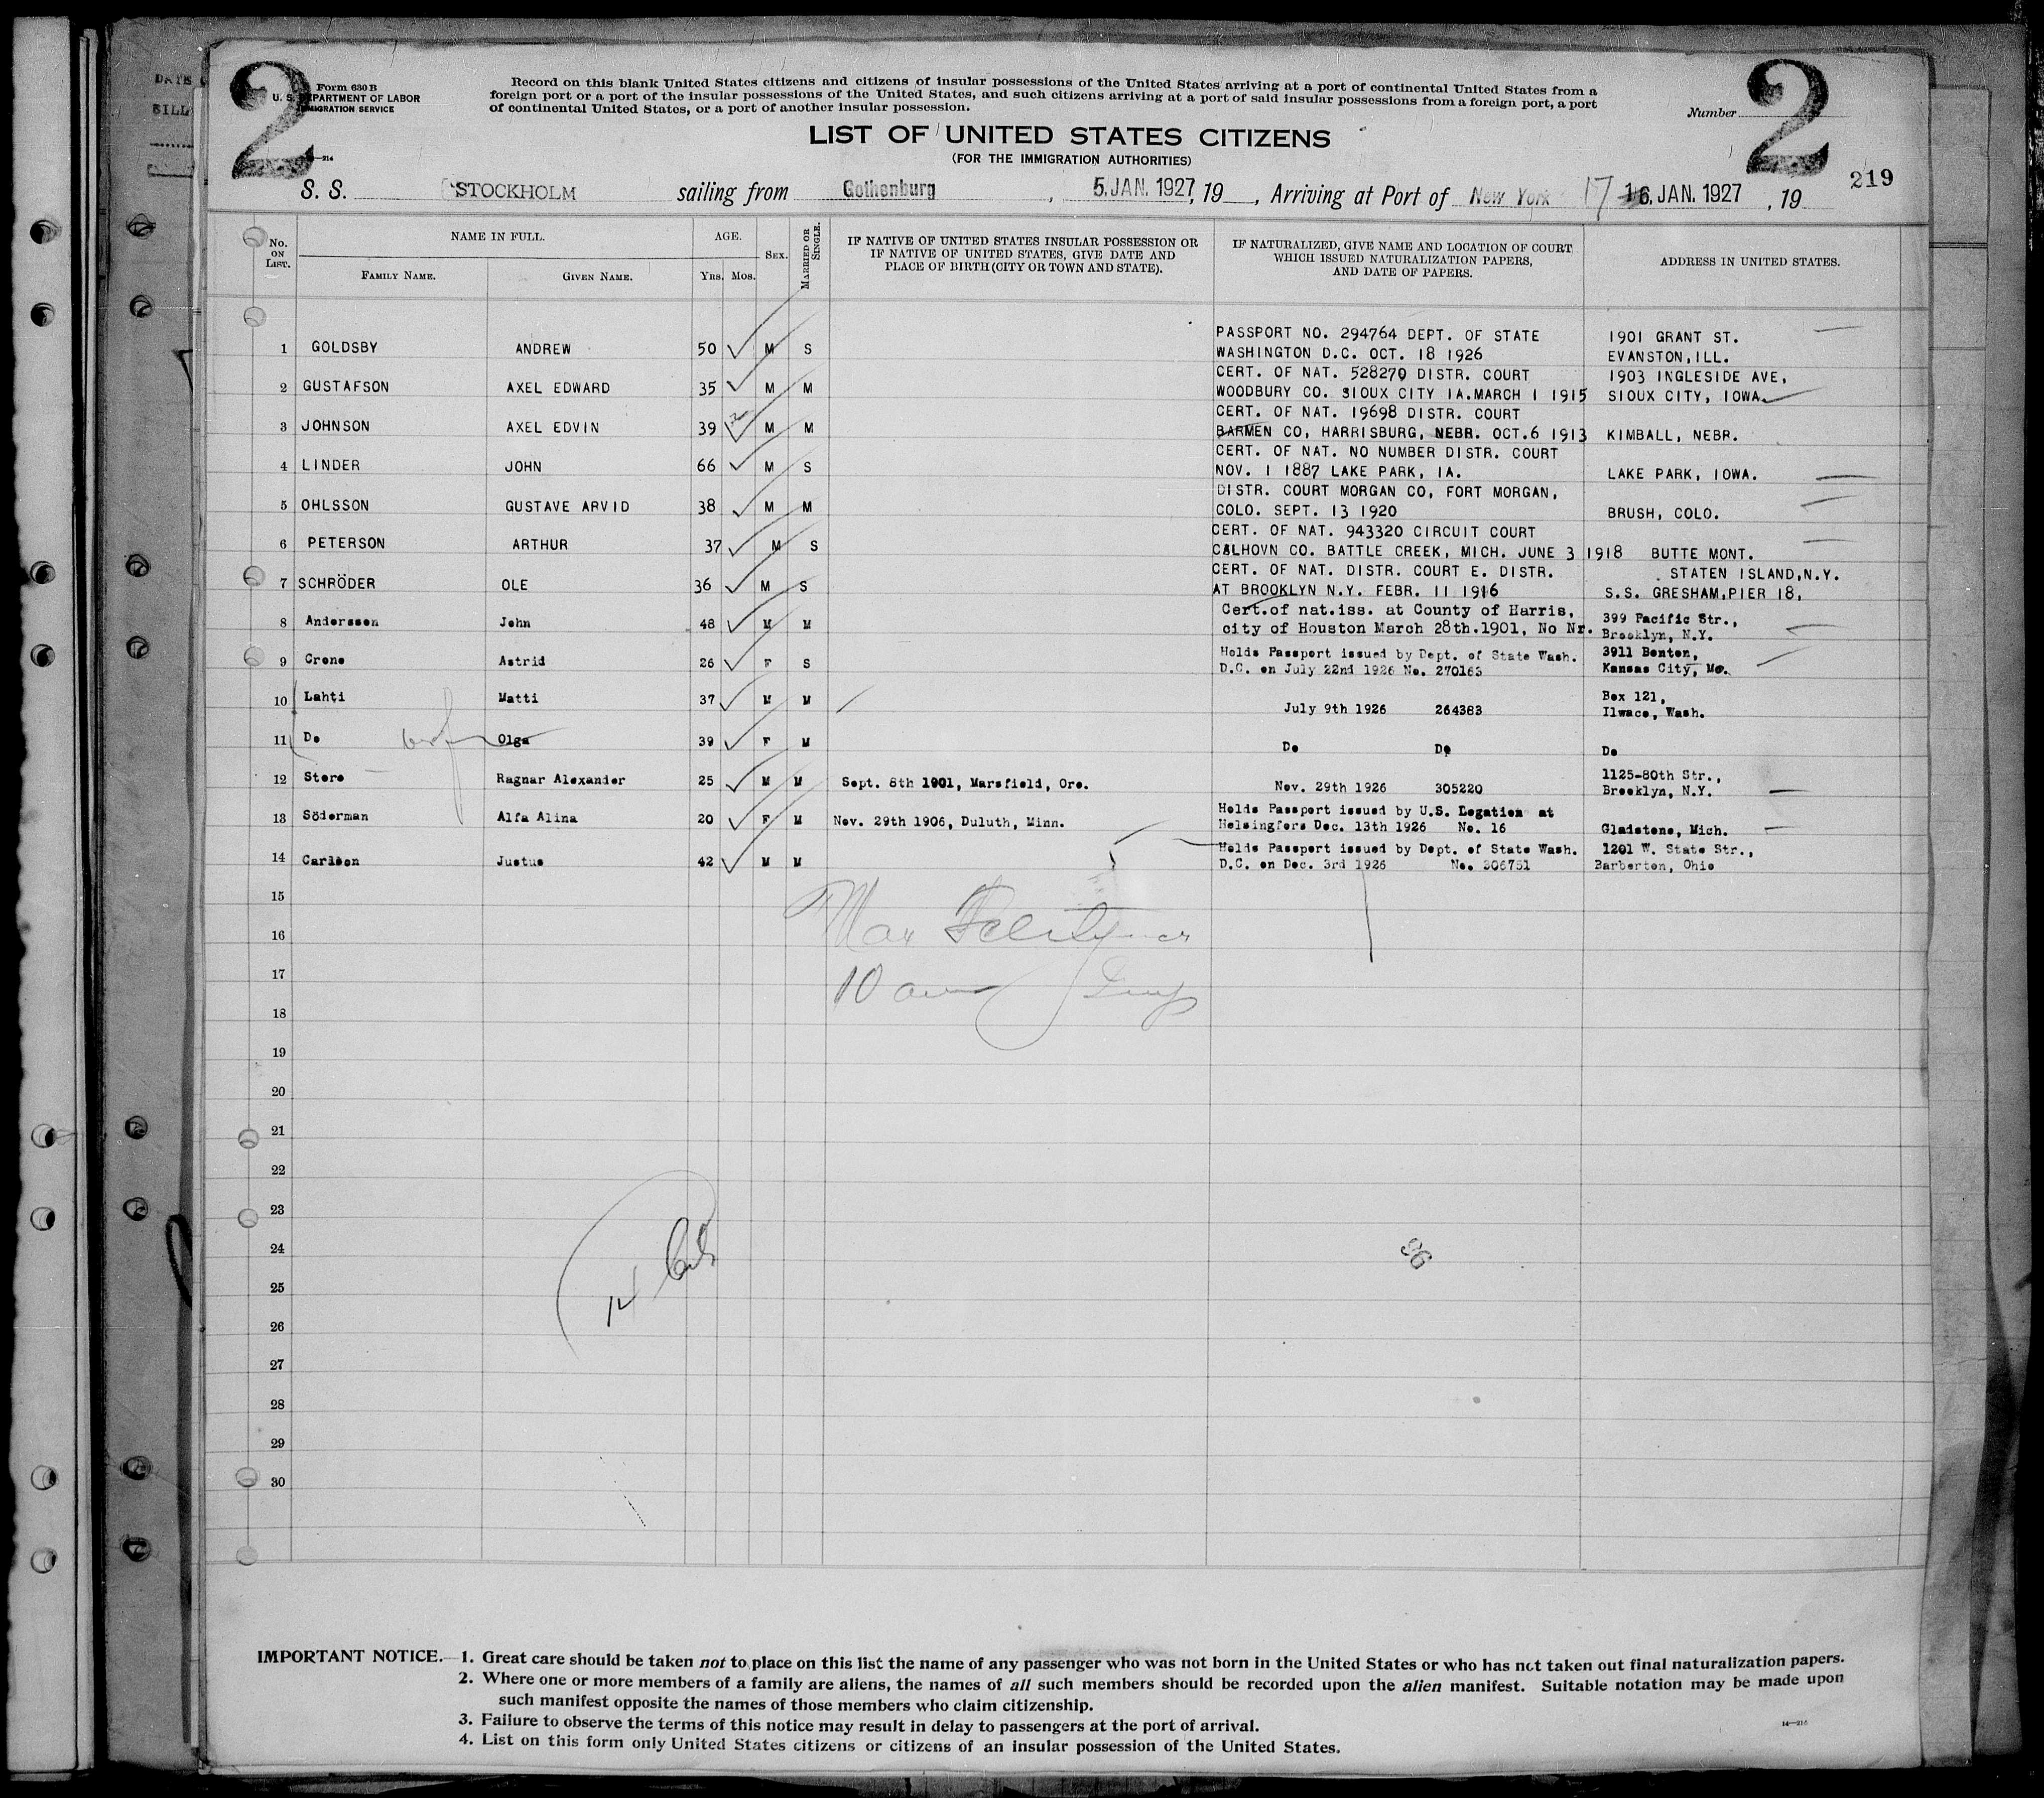 2
Form 630 B
U. S. DEPARTMENT OF LABOR
IMMIGRATION SERVICE
Record on this blank United States citizens and citizens of insular possessions of the United States arriving at a port of continental United States from a
foreign port or a port of the insular possessions of the United States, and such citizens arriving at a port of said insular possessions from a foreign port, a port
of continental United States, or a port of another insular possession.
Number
2
LIST OF UNITED STATES CITIZENS
(FOR THE IMMIGRATION AUTHORITIES)
219
S. S. STOCKHOLM sailing from Gothenburg, 5. JAN. 1927, 19, Arriving at Port of New York 17 16. JAN. 1927, 19
No. ON LIST.
NAME IN FULL.
FAMILY NAME.
GIVEN NAME.
AGE.
YRS. MOS.
SEX.
MARRIED OR SINGLE.
IF NATIVE OF UNITED STATES INSULAR POSSESSION OR
IF NATIVE OF UNITED STATES, GIVE DATE AND
PLACE OF BIRTH (CITY OR TOWN AND STATE).
IF NATURALIZED, GIVE NAME AND LOCATION OF COURT
WHICH ISSUED NATURALIZATION PAPERS,
AND DATE OF PAPERS.
ADDRESS IN UNITED STATES.
PASSPORT NO. 294764 DEPT. OF STATE 1901 GRANT ST.
1 GOLDSBY ANDREW 50 M S WASHINGTON D.C. OCT. 18 1926 EVANSTON, ILL.
CERT. OF NAT. 528270 DISTR. COURT 1903 INGLESIDE AVE,
2 GUSTAFSON AXEL EDWARD 35 M M WOODBURY CO. SIOUX CITY IA. MARCH 1 1915 SIOUX CITY, IOWA.
CERT. OF NAT. 19698 DISTR. COURT
3 JOHNSON AXEL EDVIN 39 M M BARMEN CO, HARRISBURG, NEBR. OCT.6 1913 KIMBALL, NEBR.
CERT. OF NAT. NO NUMBER DISTR. COURT
4 LINDER JOHN 66 M S NOV. 1 1887 LAKE PARK, IA. LAKE PARK, IOWA.
DISTR. COURT MORGAN CO, FORT MORGAN,
5 OHLSSON GUSTAVE ARVID 38 M M COLO. SEPT. 13 1920 BRUSH, COLO.
CERT. OF NAT. 943320 CIRCUIT COURT
6 PETERSON ARTHUR 37 M S CALHOVN CO. BATTLE CREEK, MICH. JUNE 3 1918 BUTTE MONT.
CERT. OF NAT. DISTR. COURT E. DISTR. STATEN ISLAND, N.Y.
7 SCHRÖDER OLE 36 M S AT BROOKLYN N.Y. FEBR. 11 1916 S.S. GRESHAM, PIER 18,
Cert. of nat. iss. at County of Harris, 399 Pacific Str.,
8 Andersson John 48 M M city of Houston March 28th. 1901, No Nr. Brooklyn, N.Y.
Holds Passport issued by Dept. of State Wash. 3911 Benton,
9 Crone Astrid 26 F S D.C. on July 22nd 1926 No. 270163 Kansas City, Mo.
Box 121,
10 Lahti Matti 37 M M July 9th 1926 264383 Ilwaco, Wash.
11 Do Olga 39 F M Do Do Do
1125-80th Str.,
12 Store Ragnar Alexander 25 M M Sept. 8th 1901, Marsfield, Ore. Nov. 29th 1926 305220 Brooklyn, N.Y.
Holds Passport issued by U.S. Legation at
13 Söderman Alfa Alina 20 F M Nov. 29th 1906, Duluth, Minn. Helsingfors Dec. 13th 1926 No. 16 Gladstone, Mich.
Holds Passport issued by Dept. of State Wash. 1201 W. State Str.,
14 Carlson Justus 42 M M D.C. on Dec. 3rd 1926 No. 306751 Barberton, Ohio
15
16
17
10 am
18
19
20
21
22
23
24
96
25
26
27
28
29
30
IMPORTANT NOTICE.—1. Great care should be taken not to place on this list the name of any passenger who was not born in the United States or who has not taken out final naturalization papers.
2. Where one or more members of a family are aliens, the names of all such members should be recorded upon the alien manifest. Suitable notation may be made upon
such manifest opposite the names of those members who claim citizenship.
3. Failure to observe the terms of this notice may result in delay to passengers at the port of arrival.
4. List on this form only United States citizens or citizens of an insular possession of the United States.